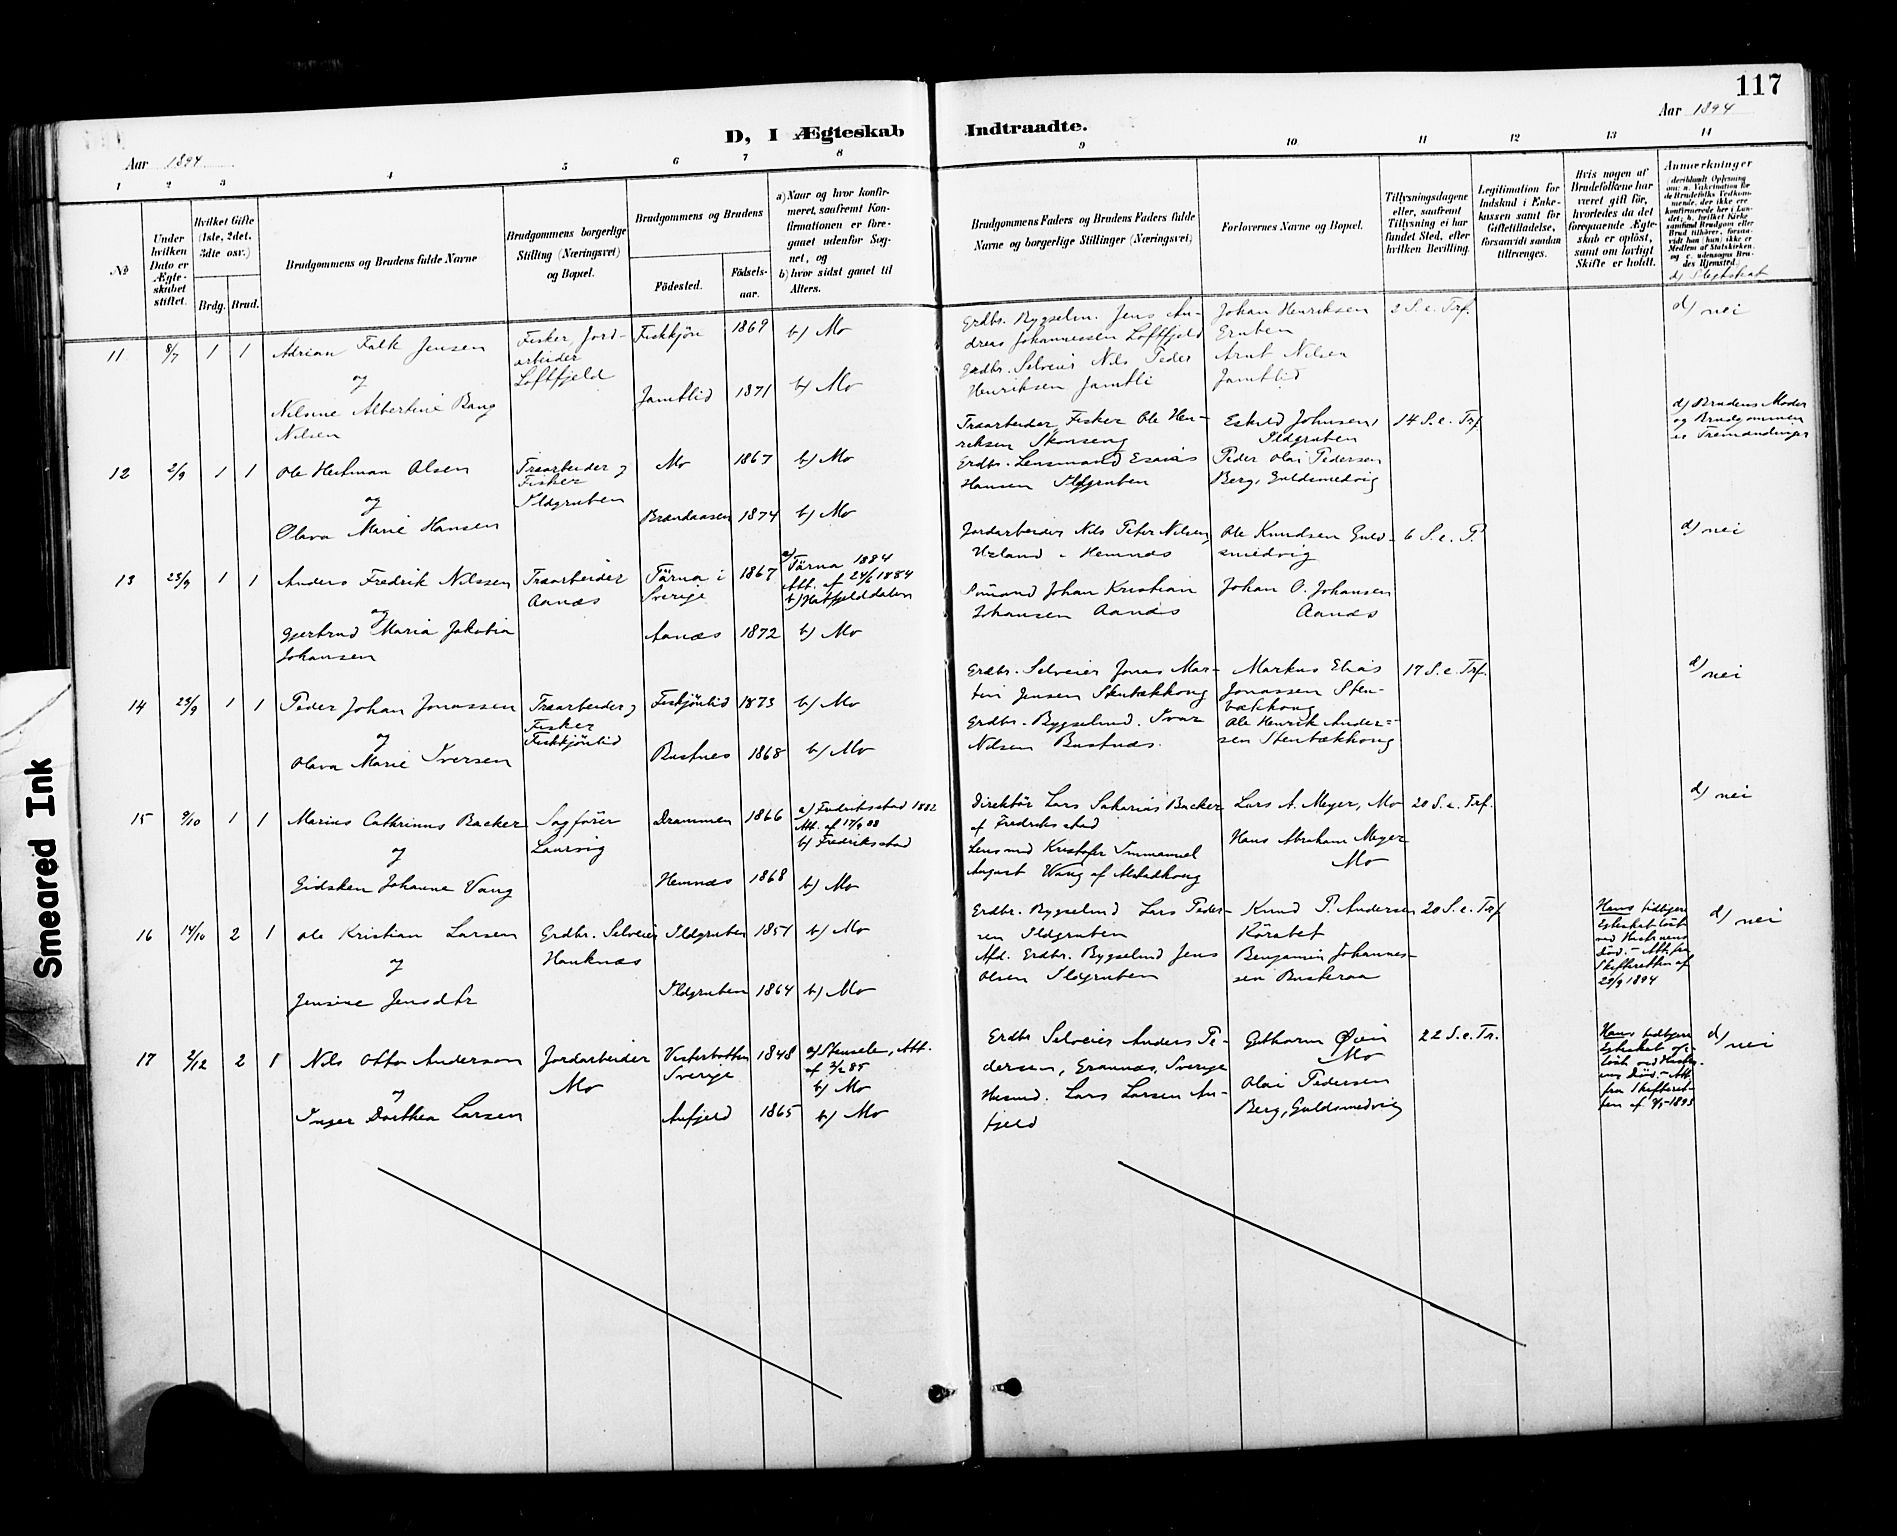 117
D, I Ægteskab Indtraadte.
Aar 1894
Aar 1894
1 2 3 4 5 6 7 8 9 10 11 12 13 14
No
Under hvilken Dato er Ægteskabet stiftet.
Hvilket Gifte (1ste, 2det, 3dte osv.)
Brdg. Brud.
Brudgommens og Brudens fulde Navne
Brudgommens borgerlige Stilling (Næringsvei) og Bopæl.
Brudgommens og Brudens
Födested.
Födselsaar.
a) Naar og hvor konfirmeret, saafremt Konfirmationen er foregaaet udenfor Sognet, og
b) hvor sidst gaaet til Alters.
Brudgommens Faders og Brudens Faders fulde Navne og borgerlige Stillinger (Næringsvei)
Forlovernes Navne og Bopæl.
Tillysningsdagene eller, saafremt Tillysning ei har fundet Sted, efter hvilken Bevilling.
Legitimation for Indskud i Enkekassen samt for Giftetilladelse, forsaavidt saadan tiltrænges.
Hvis nogen af Brudefolkene har været gift för, hvorledes da det foregaaende Ægteskab er oplöst, samt om lovligt Skifte er holdt.
Anmærkninger
d) Slegtskab
11 8/7 1 1 Adrian Falk Jensen
og
Nilsine Albertine Bang
Nilsen
Fisker Jord-
arbeider
Loftfjeld
Fiskkjön 1869 b) Mo
Jamtlid 1871 b) Mo
Grdbr. Bygselm. Jens An-
dreas Johannessen Loftfjeld
Grdbr. Selveier Nils Peder
Henriksen Jamtli
Johan Henriksen
Gruben
Arnt Nilsen
Jamtlid
2 S. e. Trf.
d) nei
12 2/9 1 1 Ole Herman Olsen
og
Olava Marie Hansen
Træarbeider &
Fisker
Ildgruben
Mo 1867 b) Mo
Brændaasen 1874 b) Mo
Træarbeider Fisker Ole Hen-
riksen Skonseng
Grdbr. Lensmand Esaias
Hansen Ildgruben
Eskild Johnsen,
Ildgruben
Peder Olai Pedersen
Berg, Guldsmedvig
14 S. e. Trf
d) Brudens Moder
og Brudgommen
er Tremændinger
13 23/9 1 1 Anders Fredrik Nilssen
og
Gjertrud Maria Jakobia
Johansen
Træarbeider
Aanæs
Tärna i
Sverige
1867
a) Tärna 1884
Att. af 24/6 1884
b) Hatfjelddalen
Aanæs 1872 b) Mo
Jordarbeider Nils Peter Nilsen
i Hemnæs
Johan Kristian
Johansen Aanæs
Ole Knudsen Guld-
smedvig
Johan O. Johansen
Aanæs
6 S. e. P.
d) nei
14 23/9 1 1 Peder Johan Jonassen
og
Olava Marie Iversen
Træarbeider &
Fisker
Fiskkjönlid
Fiskjönlid 1873 b) Mo
Bustnes 1868 b) Mo
Grdbr. Selveier Jonas Mar-
tin Jensen Stenbækhoug
Grdbr. Bygselmd. Ivar
Nilsen Bustnæs.
Markus Elias
Jonassen Sten-
bækhoug
Ole Henrik Ander-
sen Stenbækhoug
17 S. e. Trf.
d) nei
15 9/10 1 1 Marius Cathrinus Backer
og
Gidsken Johanne Wang
Sagförer
Laurvig
Drammen 1866
a) Fredriksstad 1882
Att. af 17/9 88
b) Fredriksstad
Hemnæs 1868 b) Mo
Direktör Lars Sakarias Backer
af Fredriksstad
Lensmd Kristofer Immanuel
August Wang af
Lars A. Meyer, Mo
Hans Abraham Meyer
Mo
20 S. e. Trf.
d) nei
16 14/10 2 1 Ole Kristian Larsen
og
Jensine Jensdtr
Grdbr. Selveier
Hauknæs
Ildgruben 1851 b) Mo
Ildgruben 1864 b) Mo
Grdbr. Bygselmd Lars Peder-
sen Ildgruben
Afd. Grdbr. Bygselmd Jens
Olsen Ildgruben
Knud P. Andersen
Benjamin Johannes-
sen Busteraa
20 S. e. Trf
Hans tidligere
Egteskab löst
ved Hustruens
Död. - Att. fra
Skifteretten af
29/9 1894
d) nei
17 2/12 2 1 Nils Otto Anderson
og
Inger Dorthea Larsen
Jordarbeider
Mo
Vesterbotten
Sverige
1848
a) Stensele, Att.
b) Mo
Aufjeld 1865 b) Mo
Grdbr Selveier Anders Pe-
dersen, Sverige
Husmd. Lars Larsen Au-
fjeld
Guthorm Øien
Mo
Olai Pedersen
Berg, Guldsmedvig
22 S. e. Tr.
Hans tidligere
Egteskab op-
löst ved Hustru-
ens Död. - Att
fra Skifteret-
ten af 1893
d) nei
Smeared Ink